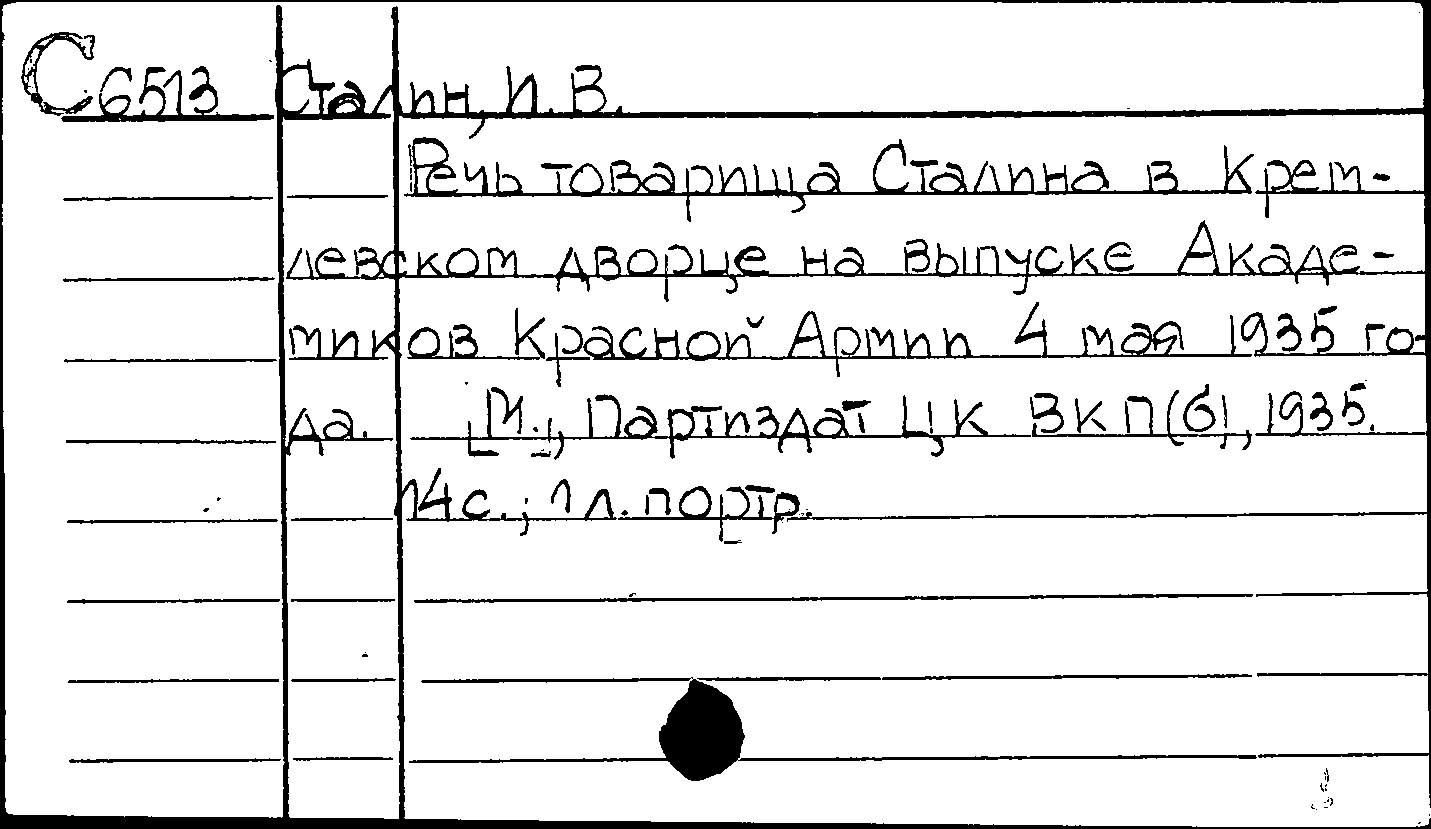 С6513 Сталин, И. В.
Речь товарища Сталина в Крем-
левском дворце на выпуске Акаде-
миков Красной Армии 4 мая 1935 го-
да. [М.], Партиздат ЦК ВКП(б), 1935.
14с.; 1 л. портр.